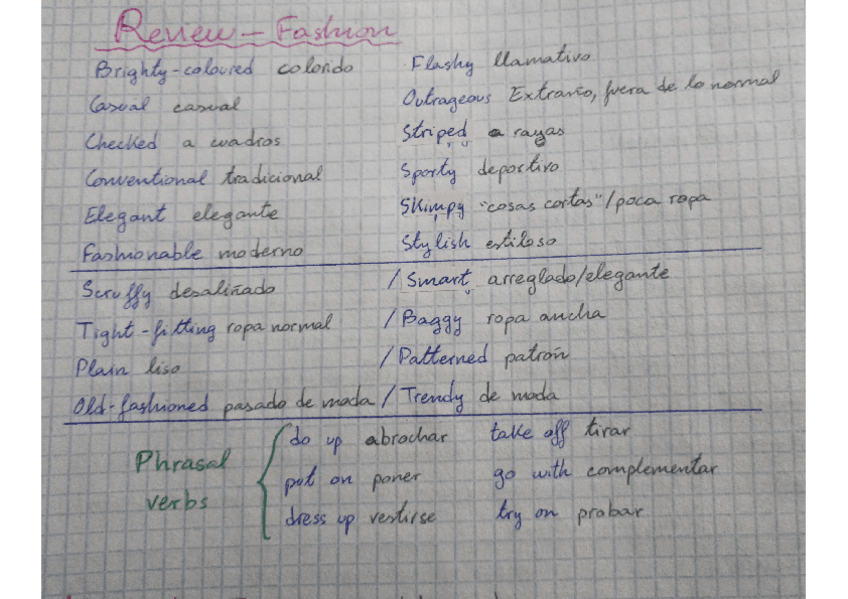 Review - Fashion
Brighty-coloured colorido Flashy llamativo
Casual casual Outrageous Extraño, fuera de lo normal
Checked a cuadros Striped a rayas
Conventional tradicional Sporty deportivo
Elegant elegante Skimpy "cosas cortas"/poca ropa
Fashionable moderno Stylish estiloso
Scruffy desaliñado / Smart arreglado/elegante
Tight-fitting ropa normal / Baggy ropa ancha
Plain liso / Patterned patrón
Old-fashioned pasado de moda / Trendy de moda
Phrasal verbs
do up abrochar take off tirar
put on poner go with complementar
dress up vestirse try on probar